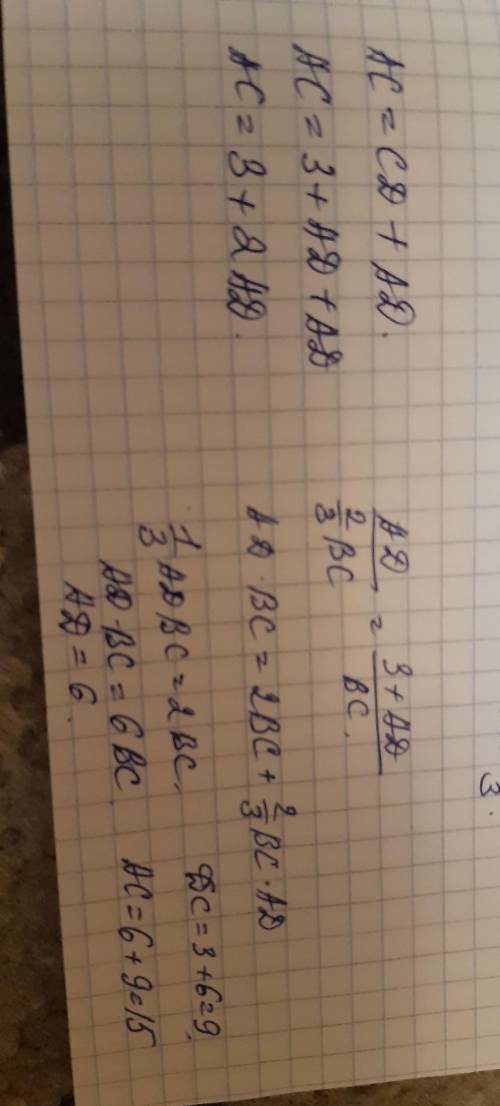 3.
AC = CD + AD.
AC = 3 + AD + AD
AC = 3 + 2AD.
AD / 2/3 BC = 3 + AD / BC.
AD · BC = 2BC + 2/3 BC · AD
1/3 AD BC = 2BC.
AD · BC = 6BC.
AD = 6.
DC = 3 + 6 = 9.
AC = 6 + 9 = 15